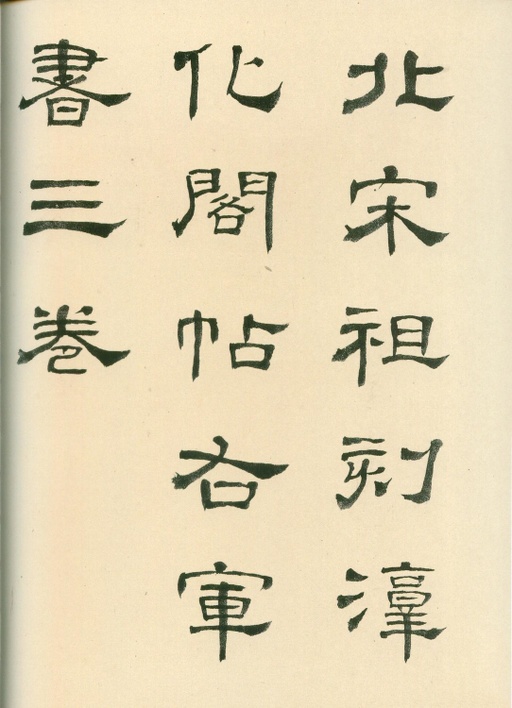 北宋祖刻淳
化閣帖右軍
書三卷